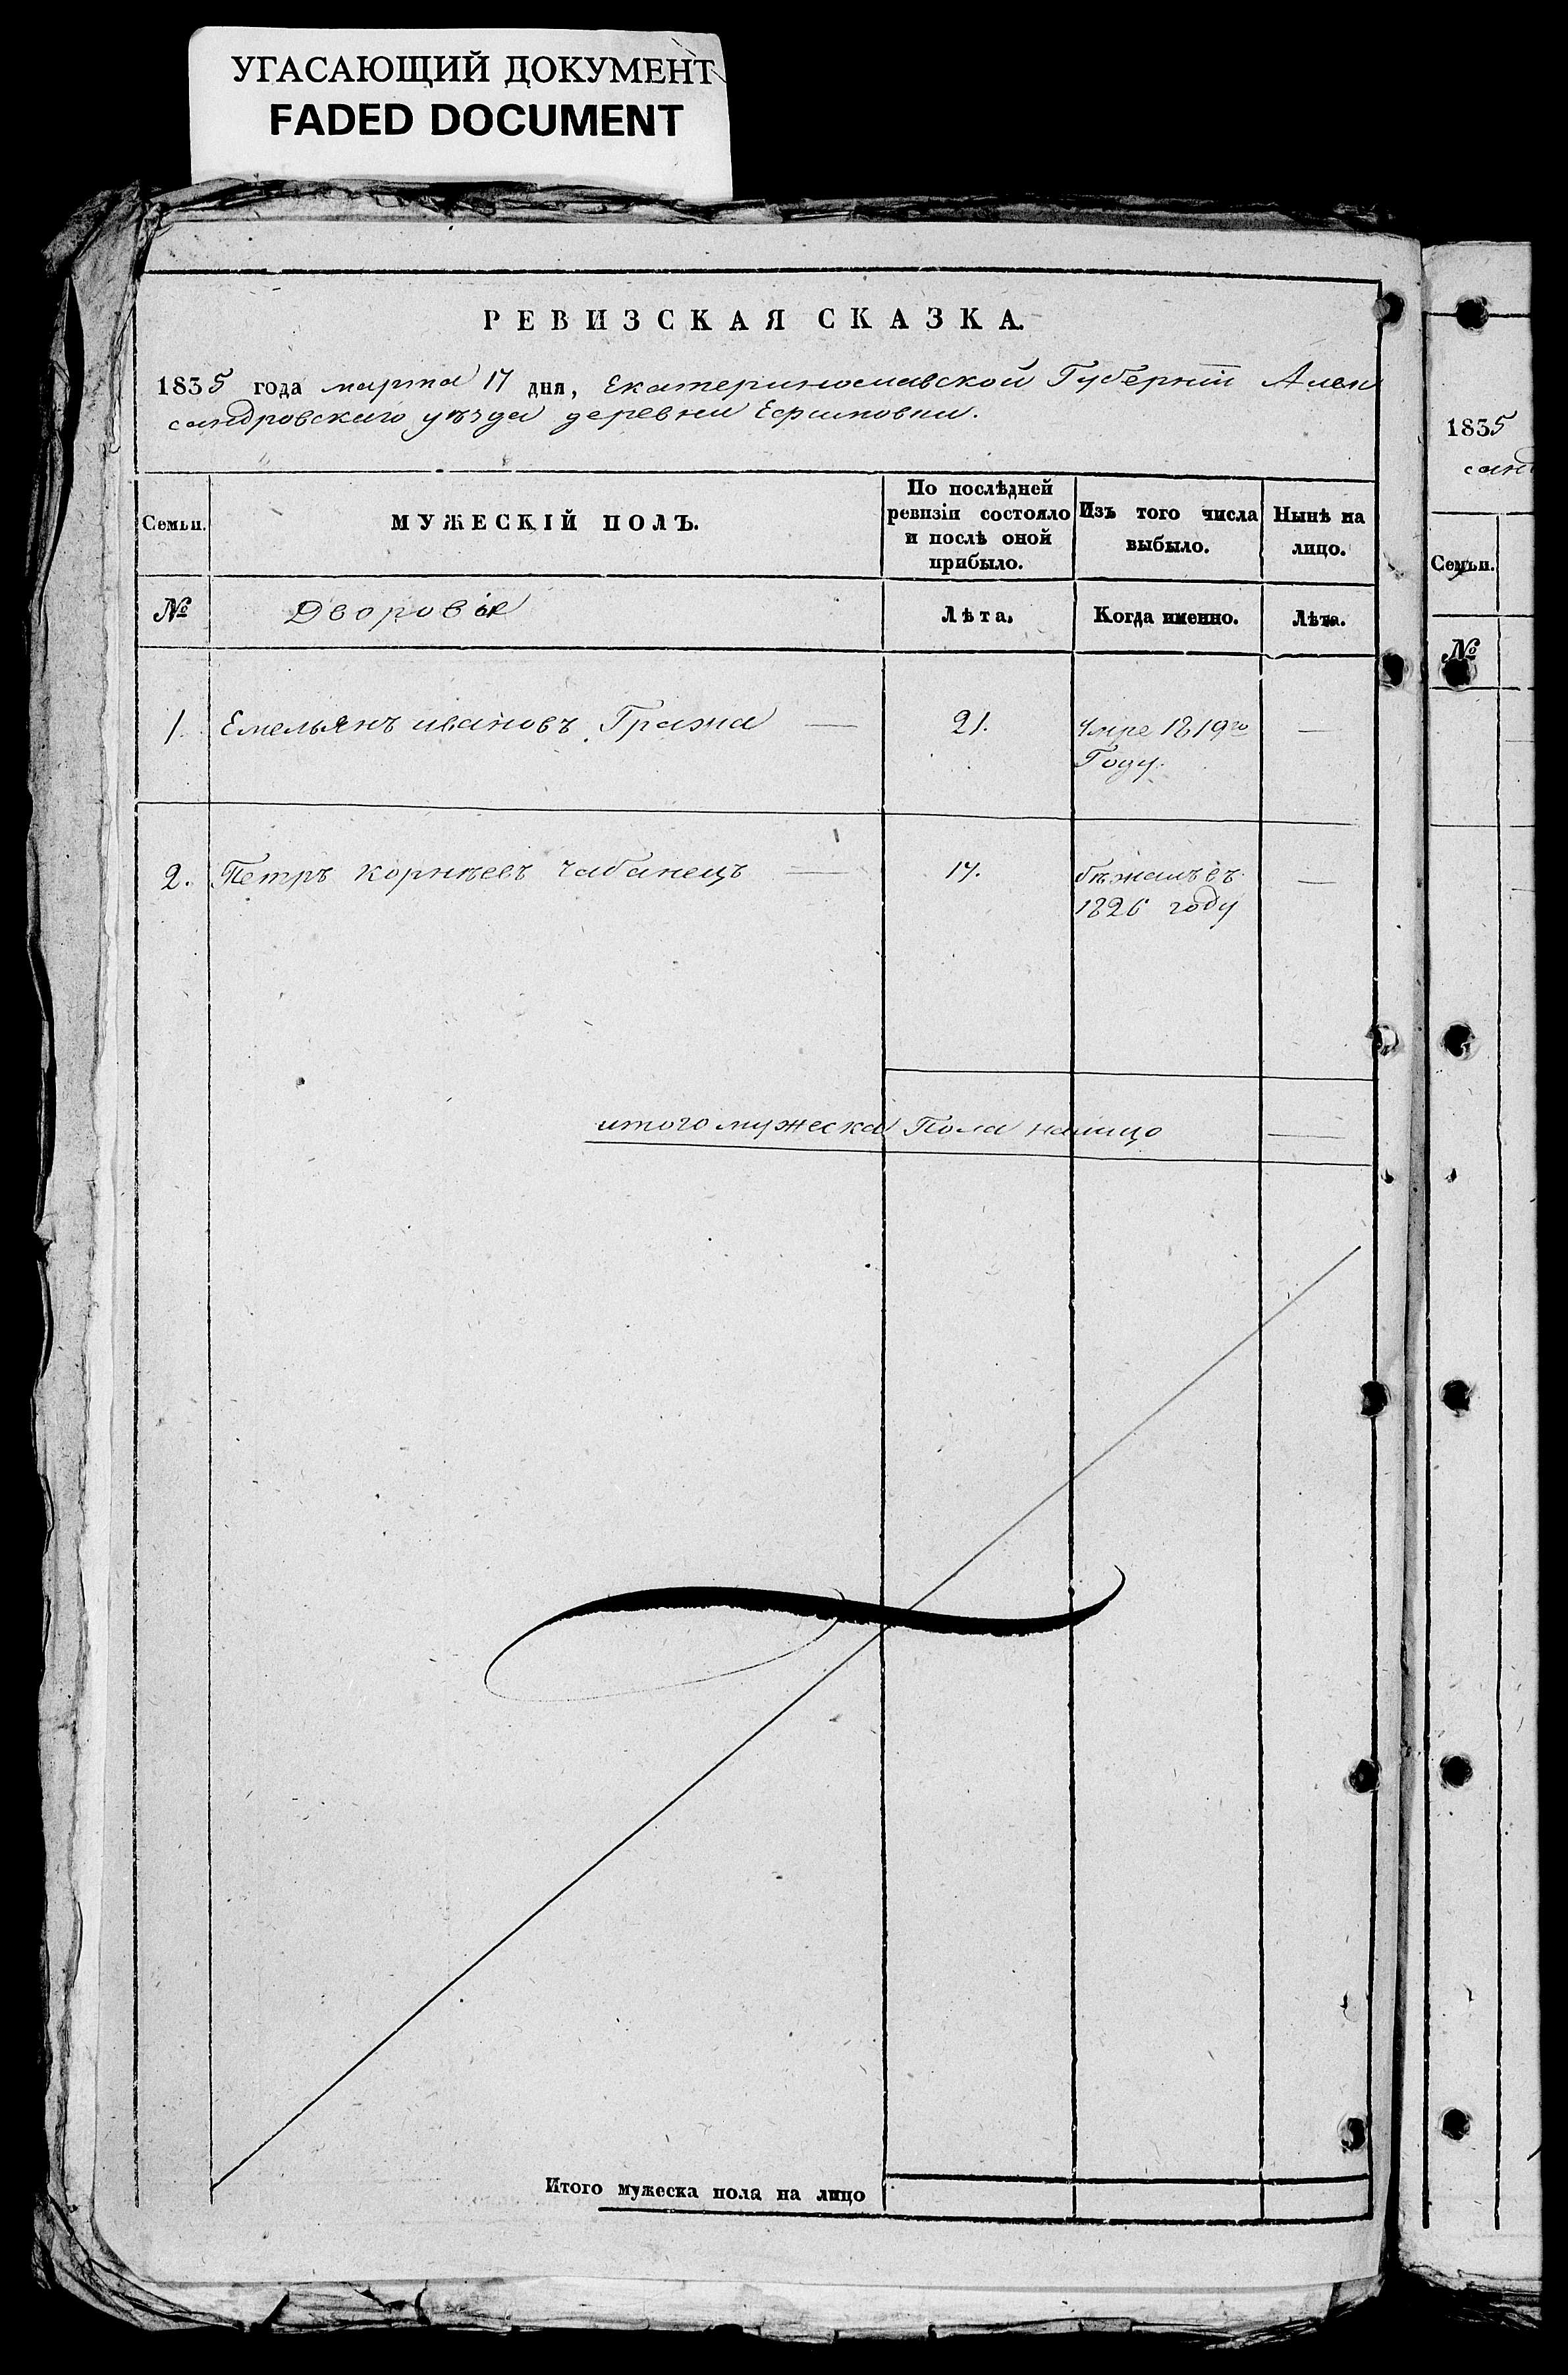 УГАСАЮЩИЙ ДОКУМЕНТ
FADED DOCUMENT
РЕВИЗСКАЯ СКАЗКА.
1835 года марта 17 дня, Екатеринославской Губернiи Алек
сандровскаго уѣзда деревни Ефимовки.
Семьи.
МУЖЕСКІЙ ПОЛЪ.
По послѣдней
ревизіи состояло
и послѣ оной
прибыло.
Изъ того числа
выбыло.
Нынѣ на
лицо.
№ Дворовые Лѣта. Когда именно. Лѣта.
1. Емельянъ ивановъ — 21. Умре 1819го —
Году.
2. Петръ корнѣевъ чабанецъ — 17. бѣжалъ въ —
1826 году
итого мужеска Пола налицо —
Итого мужеска пола на лицо
1835
санд
Семьи.
№